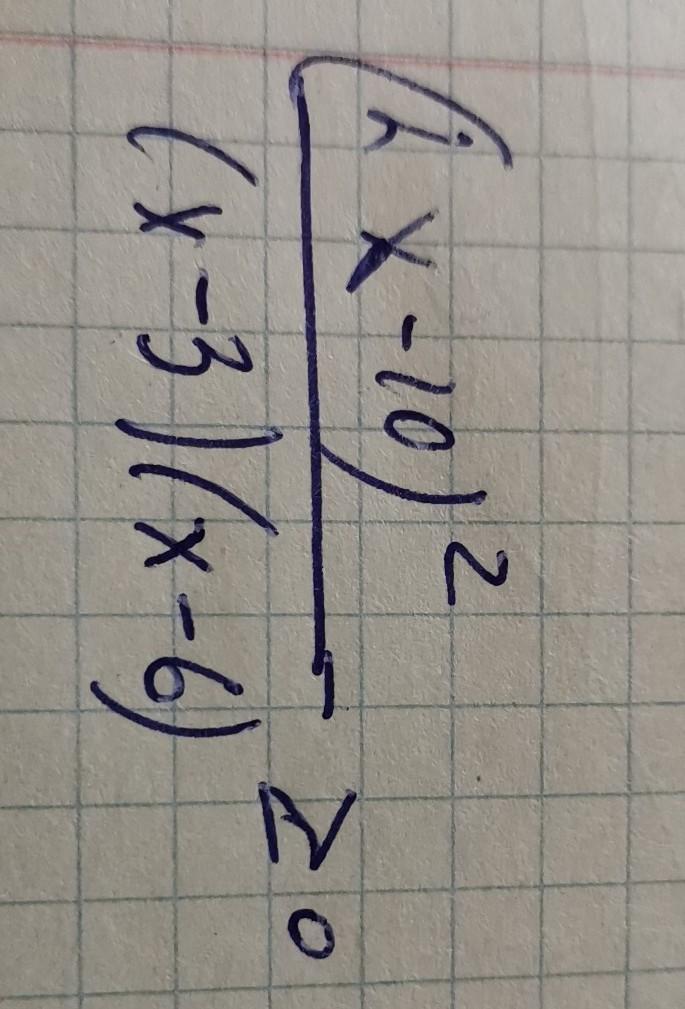 (x-10)²
(x-3)(x-6) ≥ 0